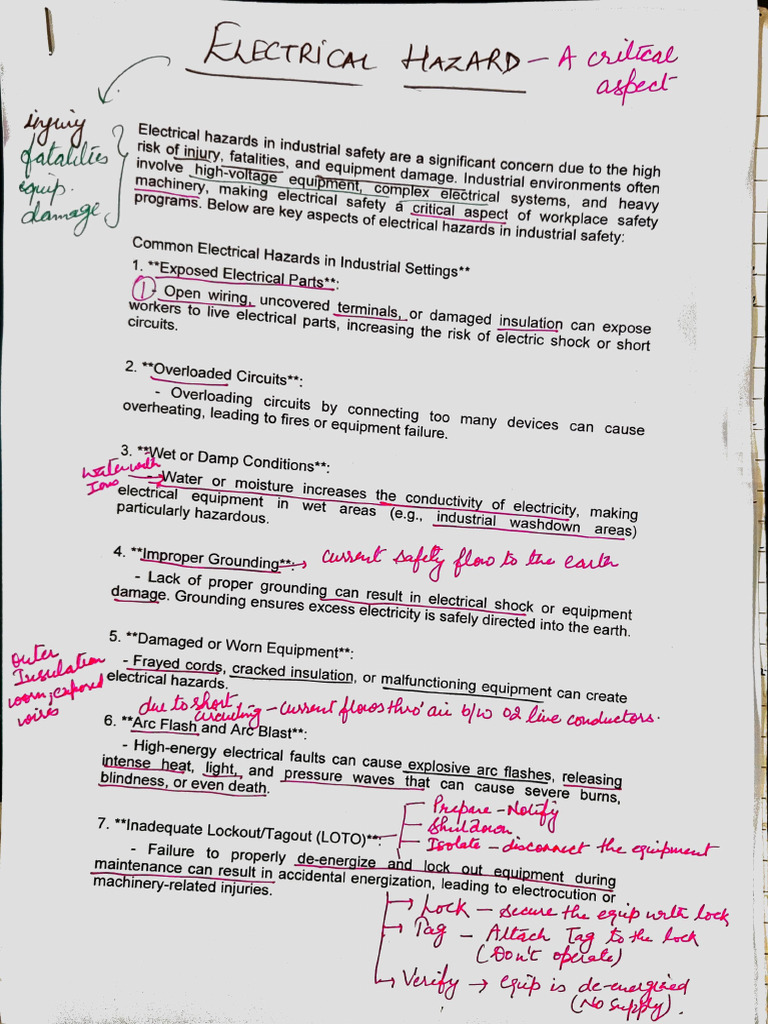 ELECTRICAL HAZARD - A critical
aspect
injury
fatalities
equip.
damage
Electrical hazards in industrial safety are a significant concern due to the high
risk of injury, fatalities, and equipment damage. Industrial environments often
involve high-voltage equipment, complex electrical systems, and heavy
machinery, making electrical safety a critical aspect of workplace safety
programs. Below are key aspects of electrical hazards in industrial safety:
Common Electrical Hazards in Industrial Settings**
1. **Exposed Electrical Parts**:
1 - Open wiring, uncovered terminals, or damaged insulation can expose
workers to live electrical parts, increasing the risk of electric shock or short
circuits.
2. **Overloaded Circuits**:
- Overloading circuits by connecting too many devices can cause
overheating, leading to fires or equipment failure.
3. **Wet or Damp Conditions**:
Water with
Ions
- Water or moisture increases the conductivity of electricity, making
electrical equipment in wet areas (e.g., industrial washdown areas)
particularly hazardous.
4. **Improper Grounding**: → current safety flow to the earth
- Lack of proper grounding can result in electrical shock or equipment
damage. Grounding ensures excess electricity is safely directed into the earth.
5. **Damaged or Worn Equipment**:
outer
Insulation
worn, exposed
wires
- Frayed cords, cracked insulation, or malfunctioning equipment can create
electrical hazards.
due to short
circuiting - current flows thro' air b/w 02 live conductors.
6. **Arc Flash and Arc Blast**:
- High-energy electrical faults can cause explosive arc flashes, releasing
intense heat, light, and pressure waves that can cause severe burns,
blindness, or even death.
Prepare - Notify
Shutdown
7. **Inadequate Lockout/Tagout (LOTO)**: Isolate - disconnect the equipment
- Failure to properly de-energize and lock out equipment during
maintenance can result in accidental energization, leading to electrocution or
machinery-related injuries.
→ Lock - secure the equip with lock
→ Tag - Attach Tag to the lock
(Don't operate)
→ Verify → equip is de-energized
(No supply).